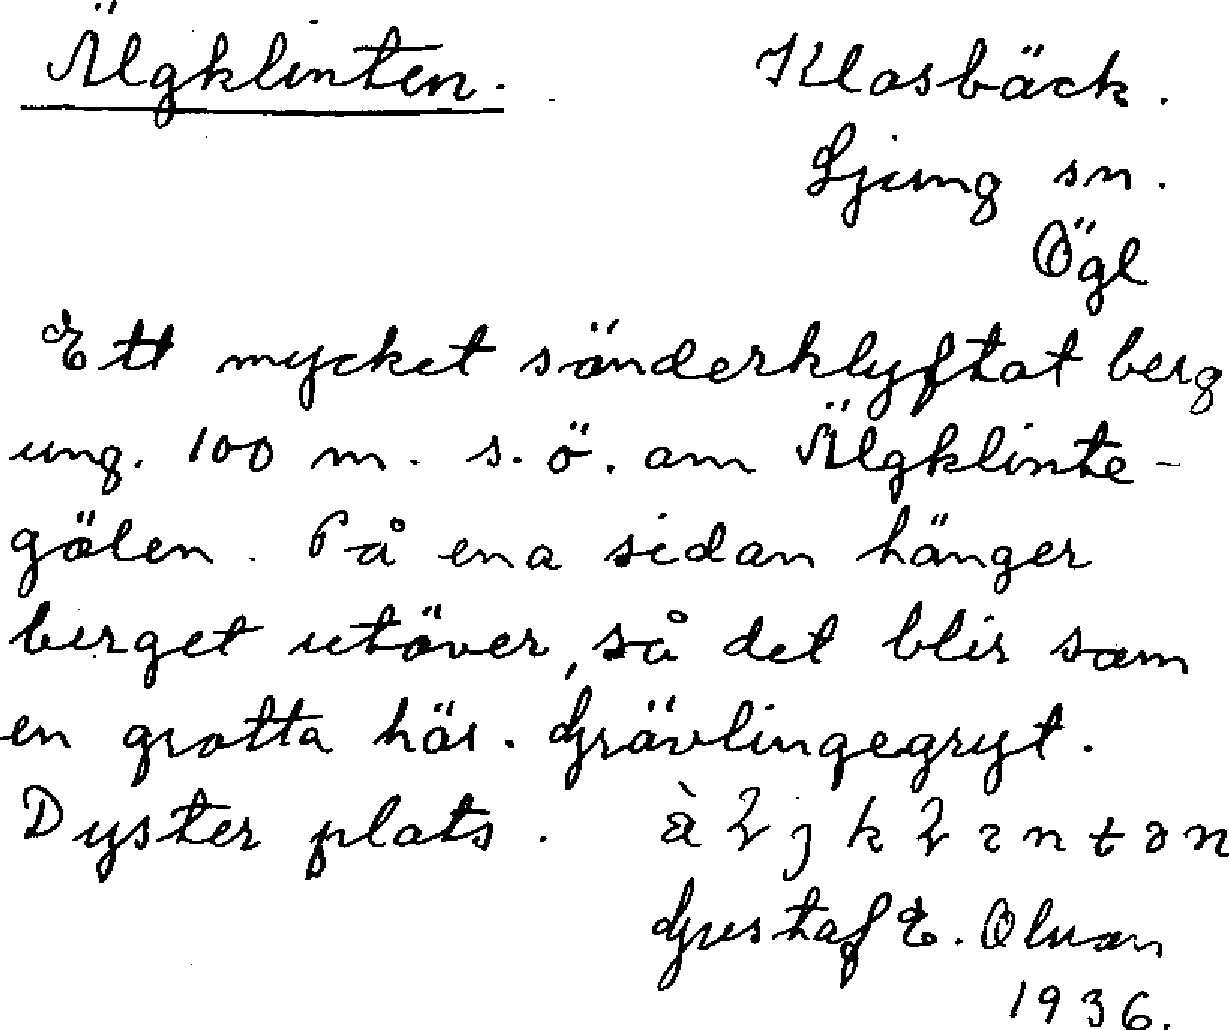 Älgklinten. Klosbäck.
Ljung sn.
Ögl
Ett mycket sönderklyftat berg
ung. 100 m. s.ö. om Älgklinte-
gölen. På ena sidan hänger
berget utöver, så det blir som
en grotta här. Grävlingegryt.
Dyster plats.
Gustaf E. Olsson
1936.